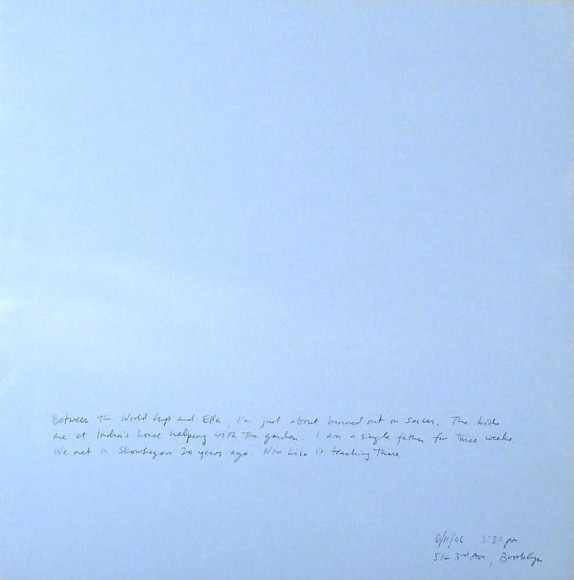 Between the World Cup and Ella, I'm just about burned out on soccer. The kids
are at India's house helping with the garden. I am a single father for three weeks.
We met in Skowhegan 20 years ago. Now Lisa is teaching there.
6/11/06 3:30 pm
512 3rd Ave, Brooklyn